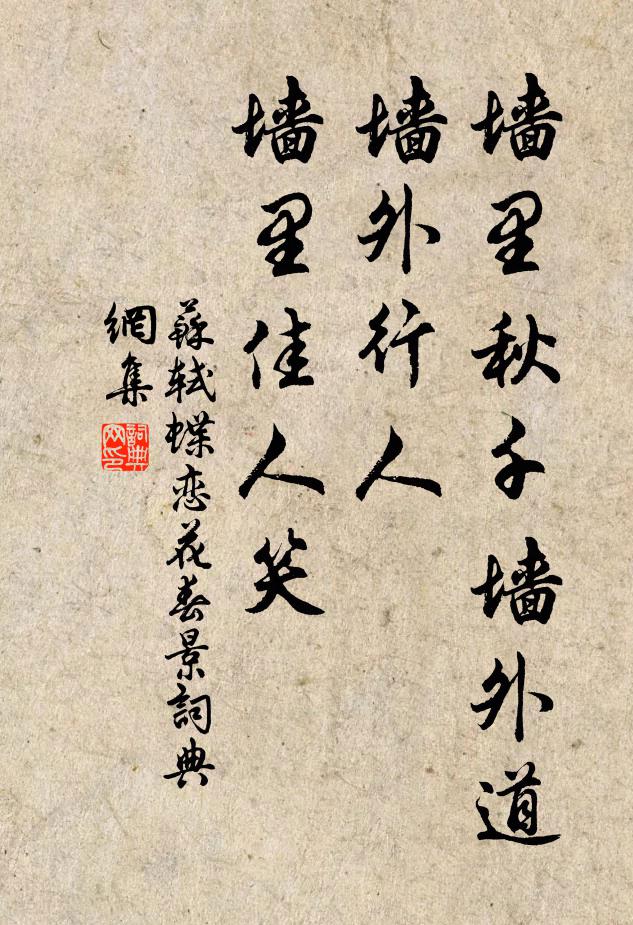 墙里秋千墙外道
墙外行人
墙里佳人笑
蘇轼蝶恋花春景詞典
網集
詞典网印